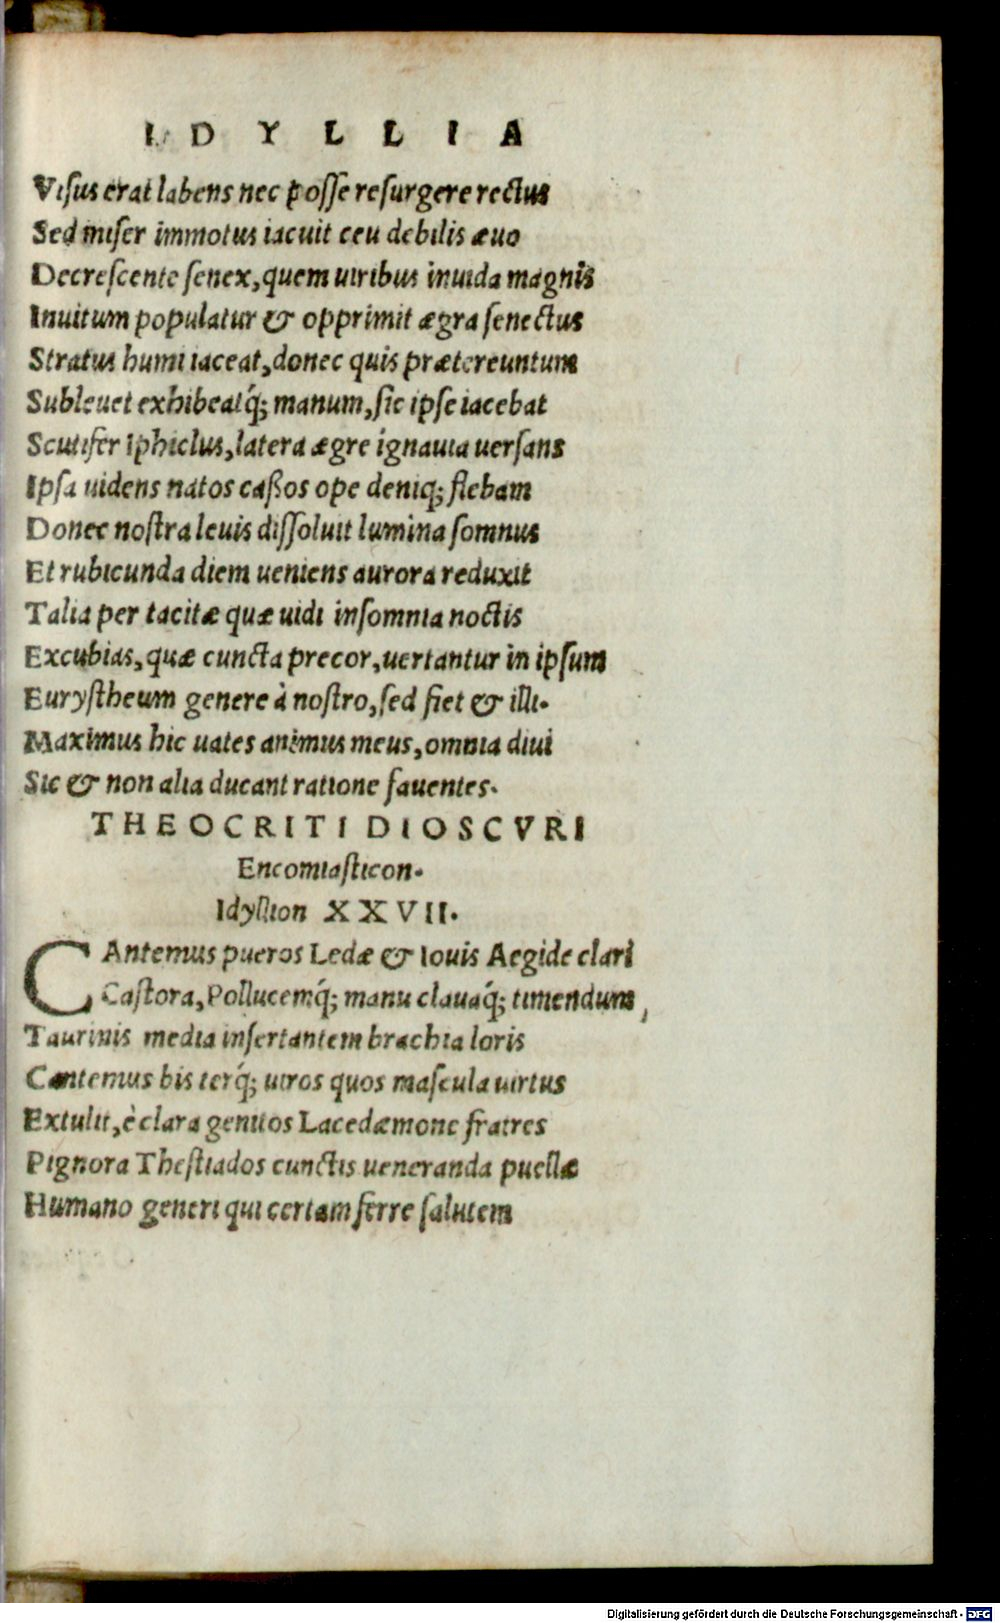 IDYLLIA
Visus erat labens nec posse resurgere rectus
Sed miser immotus iacuit ceu debilis æuo
Decrescente senex, quem uiribus inuida magnis
Inuitum populatur & opprimit ægra senectus
Stratus humi iaceat, donec quis prætereuntum
Subleuet exhibeatq́; manum, sic ipse iacebat
Scutifer Iphiclus, latera ægre ignauia uersans
Ipsa uidens natos caßos ope deniq; flebam
Donec nostra leuis dissoluit lumina somnus
Et rubicunda diem ueniens aurora reduxit
Talia per tacitæ quæ uidi insomnia noctis
Excubias, quæ cuncta precor, uertantur in ipsum
Eurystheum genere à nostro, sed fiet & illi.
Maximus hic uates animus meus, omnia diui
Sic & non alia ducant ratione fauentes.
THEOCRITI DIOSCVRI
Encomiasticon.
Idyllion XXVII.
CAntemus pueros Ledæ & Iouis Aegide clari
Castora, Pollucemq́; manu clauaq́; timendum,
Taurinis media insertantem brachia loris
Cantemus bis terq́; uiros quos mascula uirtus
Extulit, è clara genitos Lacedæmone fratres
Pignora Thestiados cunctis ueneranda puellæ
Humano generi qui certam ferre salutem
Digitalisierung gefördert durch die Deutsche Forschungsgemeinschaft - DFG